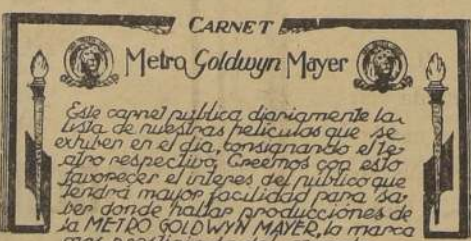 CARNET
Metro Goldwyn Mayer
Este carnet publica diariamente la
lista de nuestras peliculas que se
exhiben en el dia, consignando el te-
atro respectivo. Creemos con esto
favorecer el interes del publico que
tendrá mayor facilidad para sa-
ber donde hallar producciones de
la METRO GOLDWYN MAYER, la marca